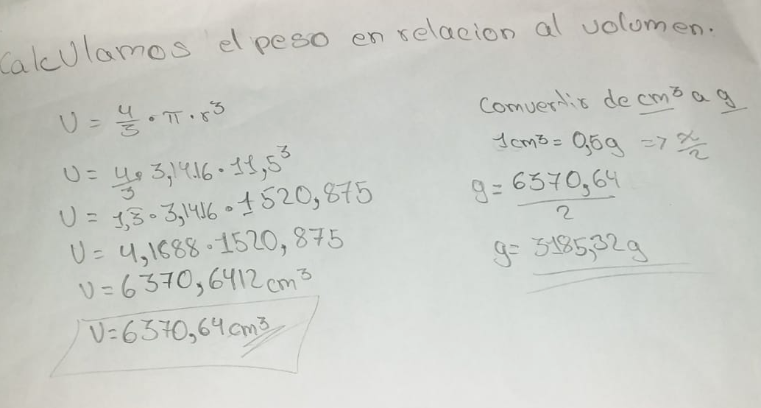 Calculamos el peso en relacion al volumen.
V = 4/3 • π • r³
V = 4/3 • 3,1416 • 11,5³
V = 1,3 • 3,1416 • 1520,875
V = 4,1888 • 1520,875
V = 6370,6412 cm³
V = 6370,64 cm³
Convertir de cm³ a g
1cm³ = 0,5g => x/2
g = 6370,64/2
g = 3185,32g